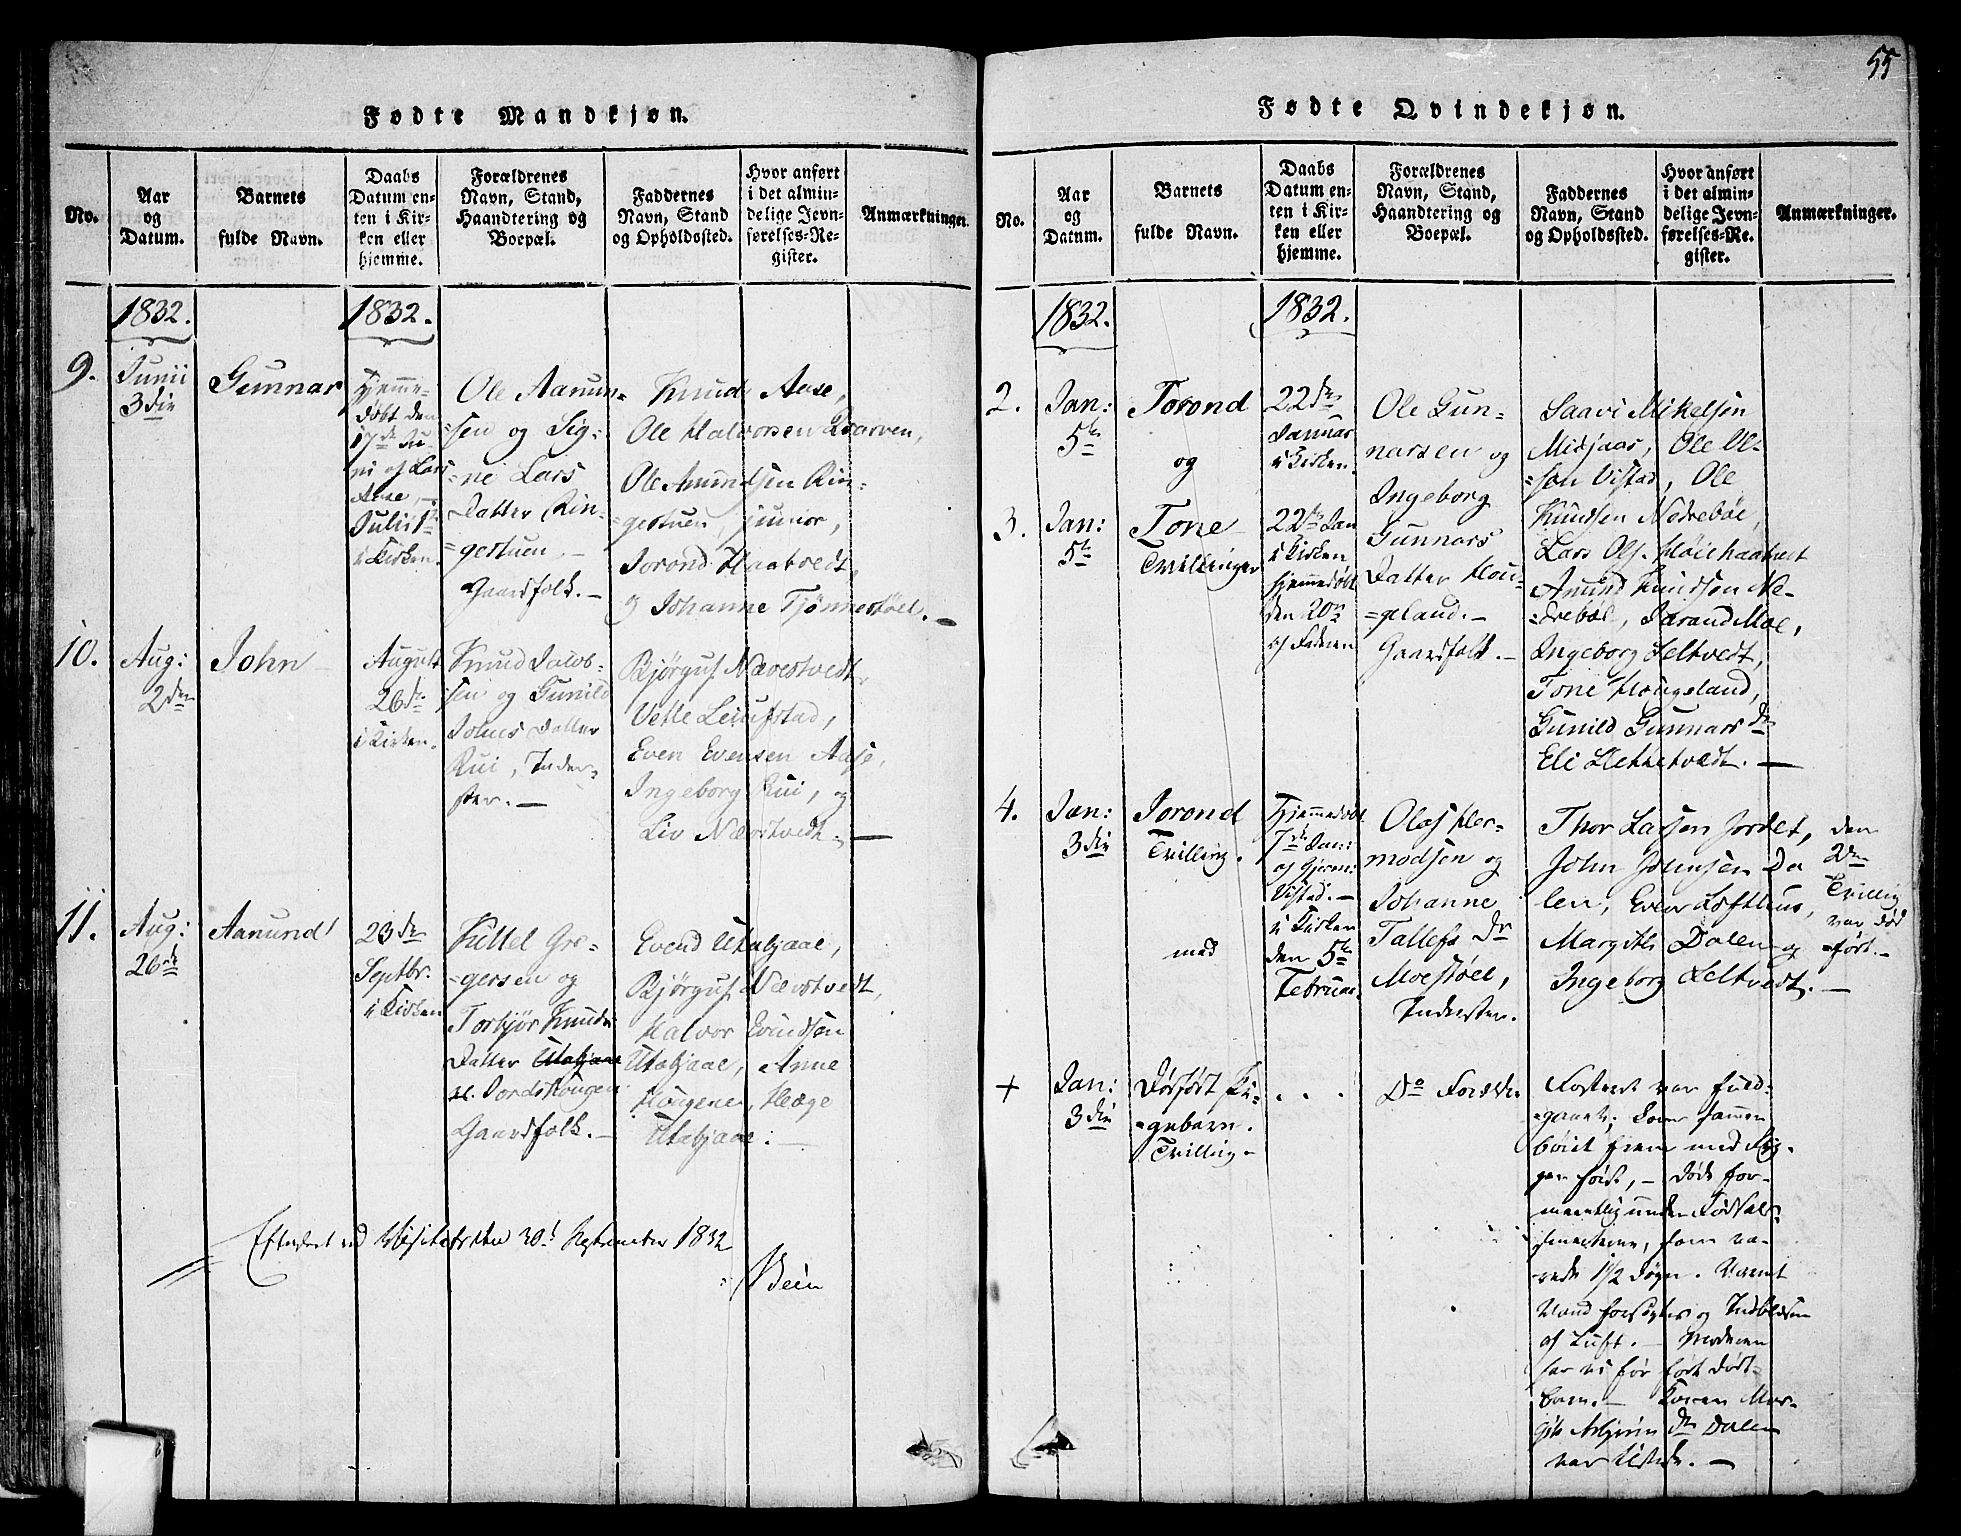 55
Fødte Mandkjøn.
No.
Aar
og
Datum.
Barnets
fulde Navn.
Daabs
Datum en-
ten i Kir-
ken eller
hjemme.
Forældrenes
Navn, Stand,
Haandtering og
Boepæl.
Faddernes
Navn, Stand
og Opholdssted.
Hvor anført
i det almin-
delige Jevn-
førelses-Re-
gister.
Anmærkninger.
1832.
1832.
9.
Junii
3die
Gunnar
Hjemme-
døbt den
17de Ju-
ni af Lars
Aase,
Julii 1ste
i Kirken.
Ole Aanun-
sen og Sig-
ne Lars
Datter Rin-
gestuen.
Gaardfolk.
Knud Aase,
Ole Halvorsen Kvarven,
Ole Anundsen Rin-
gestuen, junior,
Jorond Haatvedt,
og Johanne Tjønnestøel.
10.
Aug:
2den
John
August
26de
i Kirken.
Knud Jacob-
sen og Gunild
Johns Datter
Rui, Inder-
ster.
Bjørguf Nævestvedt,
Vetle Leiufstad,
Even Evensen Aase,
Ingeborg Rui, og
Liv Nævstvedt.
11.
Aug:
26de
Aanund
23de
Septbr.
i Kirken
Kittel Gre-
gersen og
Torbjør Knuds
Datter Utabjaae
Jordskougen
Gaardfolk.
Evend Utabjaae,
Bjørguf Nævstvedt,
Halvor Evindsen
Utabjaae, Anne
Hougene, Hæge
Utabjaae:
Efterseet ved Visitatsen den 30. September 1832
Bein
Fødte Qvindekjøn.
No.
Aar
og
Datum.
Barnets
fulde Navn.
Daabs
Datum en-
ten i Kir-
ken eller
hjemme.
Forældrenes
Navn, Stand,
Haandtering og
Boepæl.
Faddernes
Navn, Stand
og Opholdssted.
Hvor anført
i det almin-
delige Jevn-
førelses-Re-
gister.
Anmærkninger.
1832.
1832.
2.
Jan:
5te
Torond
og
22de
Januar
i Kirken.
Ole Gun-
narsen og
Ingeborg
Gunnars
Datter Hou-
geland.
Gaardfolk.
3.
Jan:
5te
Tone
Tvillinger
22de Jan
i Kirken
hjemmedøbt
den 20de
af Faderen
Saavi Mikelsen
Midjaas, Ole Ol-
sen Vistad, Ole
Knudsen Nedrebøe,
Lars Ols. Høiehaatvedt
Anund Knudsen Ne-
drebøe, Jorand Moe,
Ingeborg Leltvedt,
Tone Hougeland,
Gunild Gunnars Dr
Eli Hekkelvedt.
4.
Jan:
3die
Jorond
Tvilling.
med
Hjemmedøbt
7de Jan:
af Gjerm:
Vistad.
i Kirken
den 5te
Februar.
Olaf Her-
modsen og
Johanne
Tallefs Dr
Moestøel,
Inderster.
Thor Larsen Jordet,
John Johnsen Da
len, Even Lofthuus,
Margith Dalen og
Ingeborg Leltvedt.
den
2den
Tvilling
var død
ført.
+
Jan:
3die
Dødført Pi-
gebarn.
Tvilling
. . .
Do Forældre
Fosteret var fuld-
gaaet; kom sammen
bøiet frem med Ryg-
gen først, døde for-
mentlig under Fødsels-
smerterne, som va-
rede 1 1/2 Døgn. Varmt
Vand forsøgtes og Indblæsen
af Luft. Moderen
har ei før ført død-
barn. Konen Mar-
gith Asbjørns Dr Dalen
var tilstede.